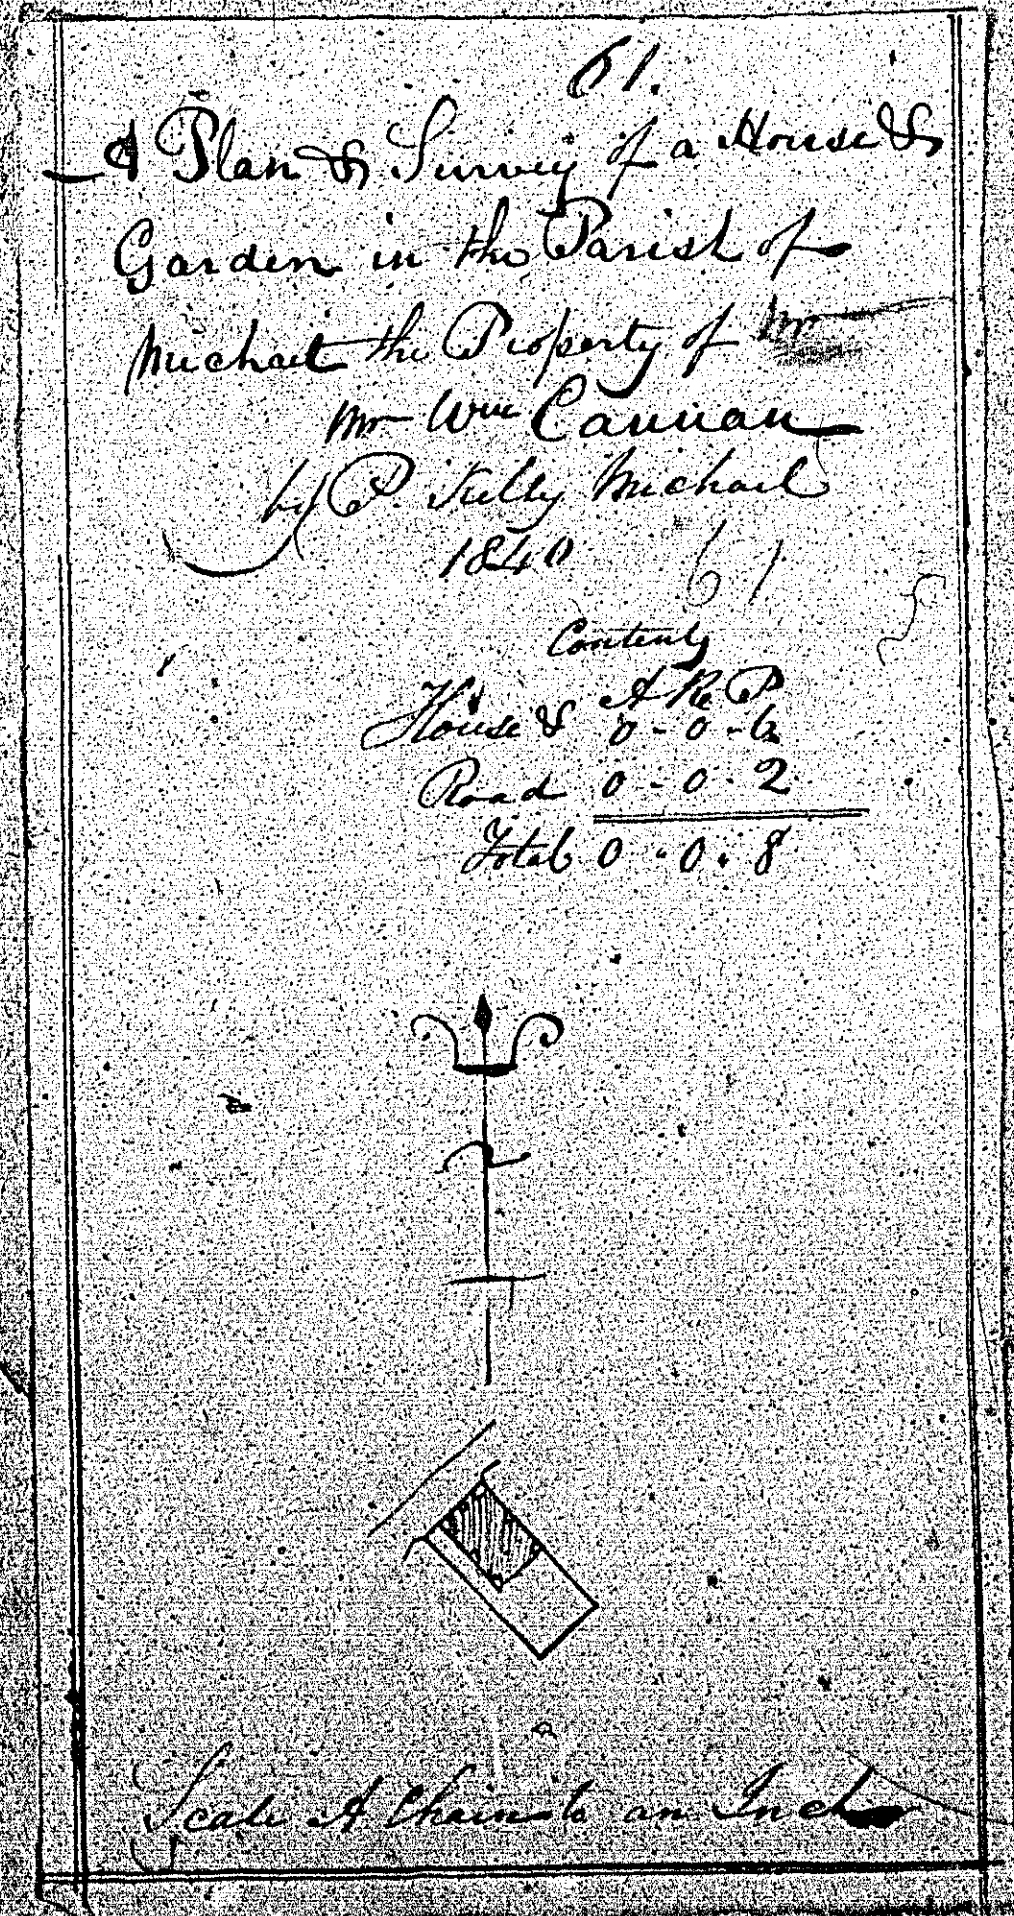 61.
A Plan & Survey of a House &
Garden in the Parish of
Michael the Property of Mr
Mr Wm Cannan
by P. Kelly Michael
1840
61
Contents
A R P
House & 0-0-6
Road 0-0-2
Total 0-0-8
Scale A Chain to an Inch